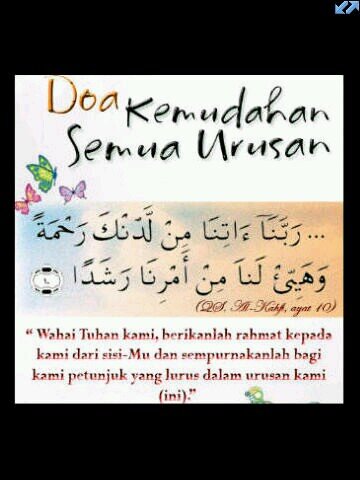 Doa Kemudahan
Semua Urusan
... رَبَّنَآ ءَاتِنَا مِنْ لَّدُنْكَ رَحْمَةً
وَهَيِّئْ لَنَا مِنْ أَمْرِنَا رَشَدًا ١٠
(QS, Al-Kahfi, ayat 10)
“ Wahai Tuhan kami, berikanlah rahmat kepada
kami dari sisi-Mu dan sempurnakanlah bagi
kami petunjuk yang lurus dalam urusan kami
(ini).”